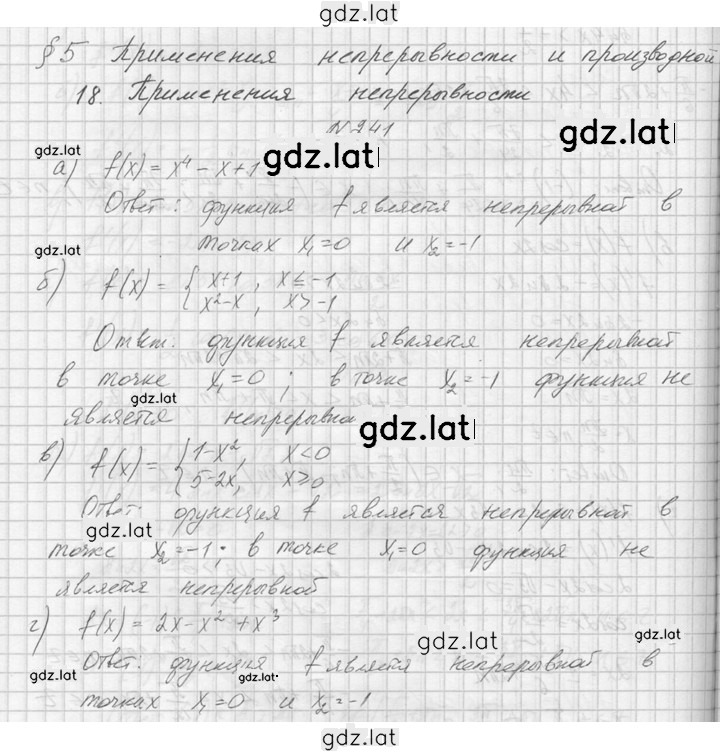 gdz.lat
§5 Применения непрерывности и производной
18. Применения непрерывности
N 241
gdz.lat
gdz.lat
gdz.lat
а) f(x) = x⁴ – x + 1
Ответ: функция f является непрерывной в
точках x₁=0 и x₂=-1
gdz.lat
б) f(x) = { x+1, x ≤ -1
x²-x, x > -1
Ответ: функция f является непрерывной
в точке x₁=0; в точке x₂=-1 функция не
gdz.lat
является непрерывна
gdz.lat
в) f(x) = { 1-x², x<0
5-2x, x≥0
Ответ: функция f является непрерывной в
gdz.lat
точке x₂=-1; в точке x₁=0 функция не
является непрерывной
г) f(x) = 2x-x²+x³
gdz.lat
gdz.lat
Ответ: функция f является непрерывной в
gdz.lat
gdz.lat
точках x₁=0 и x₂=-1
gdz.lat